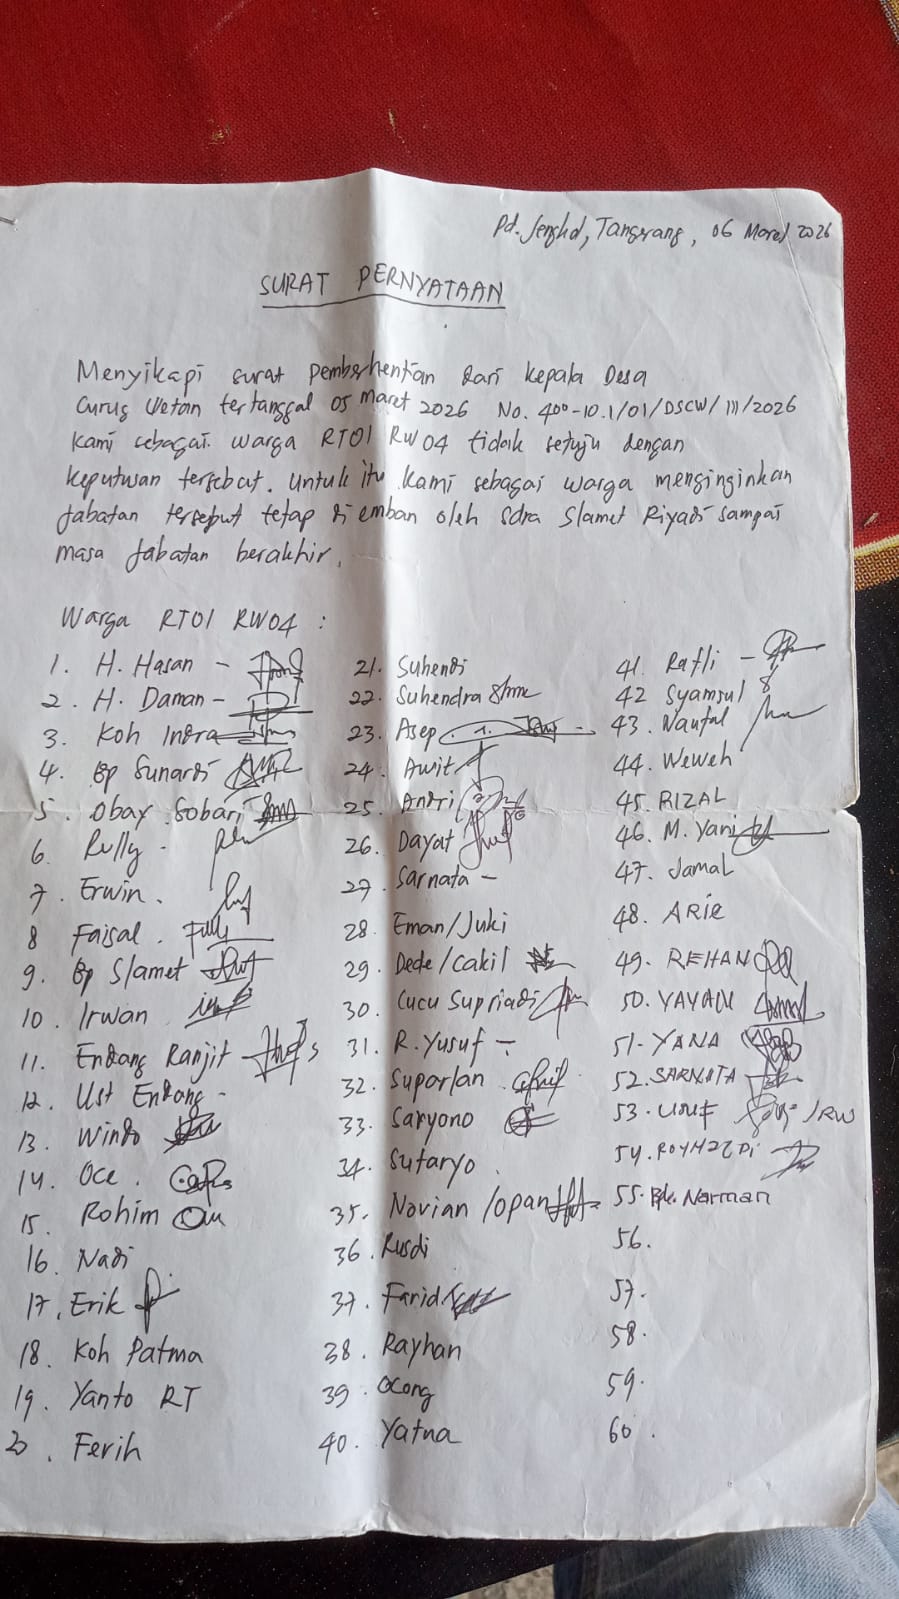 Pd. Jengkol, Tangerang, 06 Maret 2026
SURAT PERNYATAAN
Menyikapi surat pemberhentian dari Kepala Desa
Curug Wetan tertanggal 05 Maret 2026 No. 400-10.1/01/DSCW/III/2026
Kami sebagai warga RT01 RW04 tidak setuju dengan
keputusan tersebut. Untuk itu kami sebagai warga menginginkan
Jabatan tersebut tetap di emban oleh Sdra Slamet Riyadi sampai
masa Jabatan berakhir.
Warga RT01 RW04 :
1. H. Hasan -
2. H. Daman -
3. Koh Indra
4. Bp Sunardi
5. Obay Sobari
6. Rully -
7. Erwin.
8 Faisal.
9. Bp Slamet
10. Irwan
11. Endang Ranjit
12. Ust Endang -
13. Windo
14. Oce.
15. Rohim
16. Nadi
17. Erik
18. Koh Patma
19. Yanto RT
20. Ferih
21. Suhendi
22. Suhendra
23. Asep
24. Awit
25. Andri
26. Dayat
27. Sarnata -
28. Eman/Juki
29. Dede/Cakil
30. Cucu Supriadi
31. R. Yusuf -
32. Suparlan
33. Saryono
34. Sutaryo
35. Novian /Opan
36. Rusdi
37. Farid
38. Rayhan
39. Ocong
40. Yatna
41. Rafli -
42 Syamsul
43. Naufal
44. Weweh
45. RIZAL
46. M. Yani
47. Jamal
48. ARIE
49. REHAN
50. YAYAN
51. YANA
52. SARNATA
53. /RW
54.
55. Bpk. Narman
56.
57.
58.
59.
60.